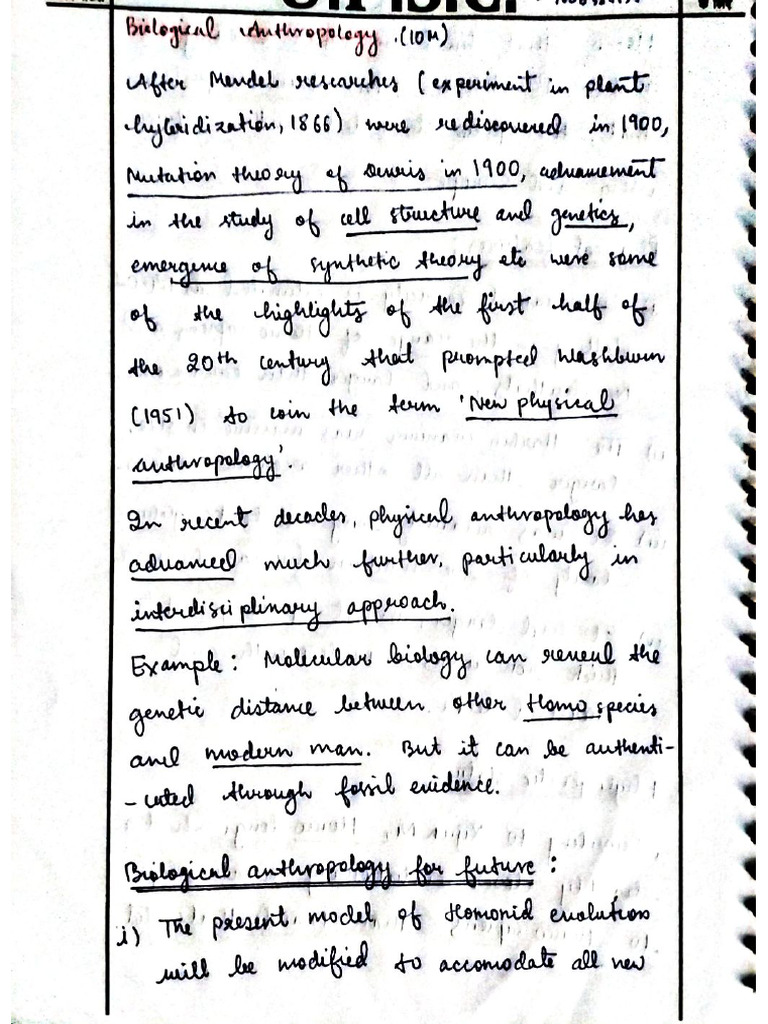 Biological Anthropology. (10M)
After Mendel researches (experiment in plant
hybridization, 1866) were rediscovered in 1900,
Mutation theory of Devris in 1900, advancement
in the study of cell structure and genetics,
emergence of synthetic theory etc were some
of the highlights of the first half of
the 20th century that prompted Washburn
(1951) to coin the term 'New physical
anthropology'.
In recent decades, physical anthropology has
advanced much further, particularly in
interdisciplinary approach.
Example: Molecular biology can reveal the
genetic distance between other Homo species
and modern man. But it can be authenti-
-cated through fossil evidence.
Biological anthropology for future :
i) The present model of Homonid evolution
will be modified to accomodate all new